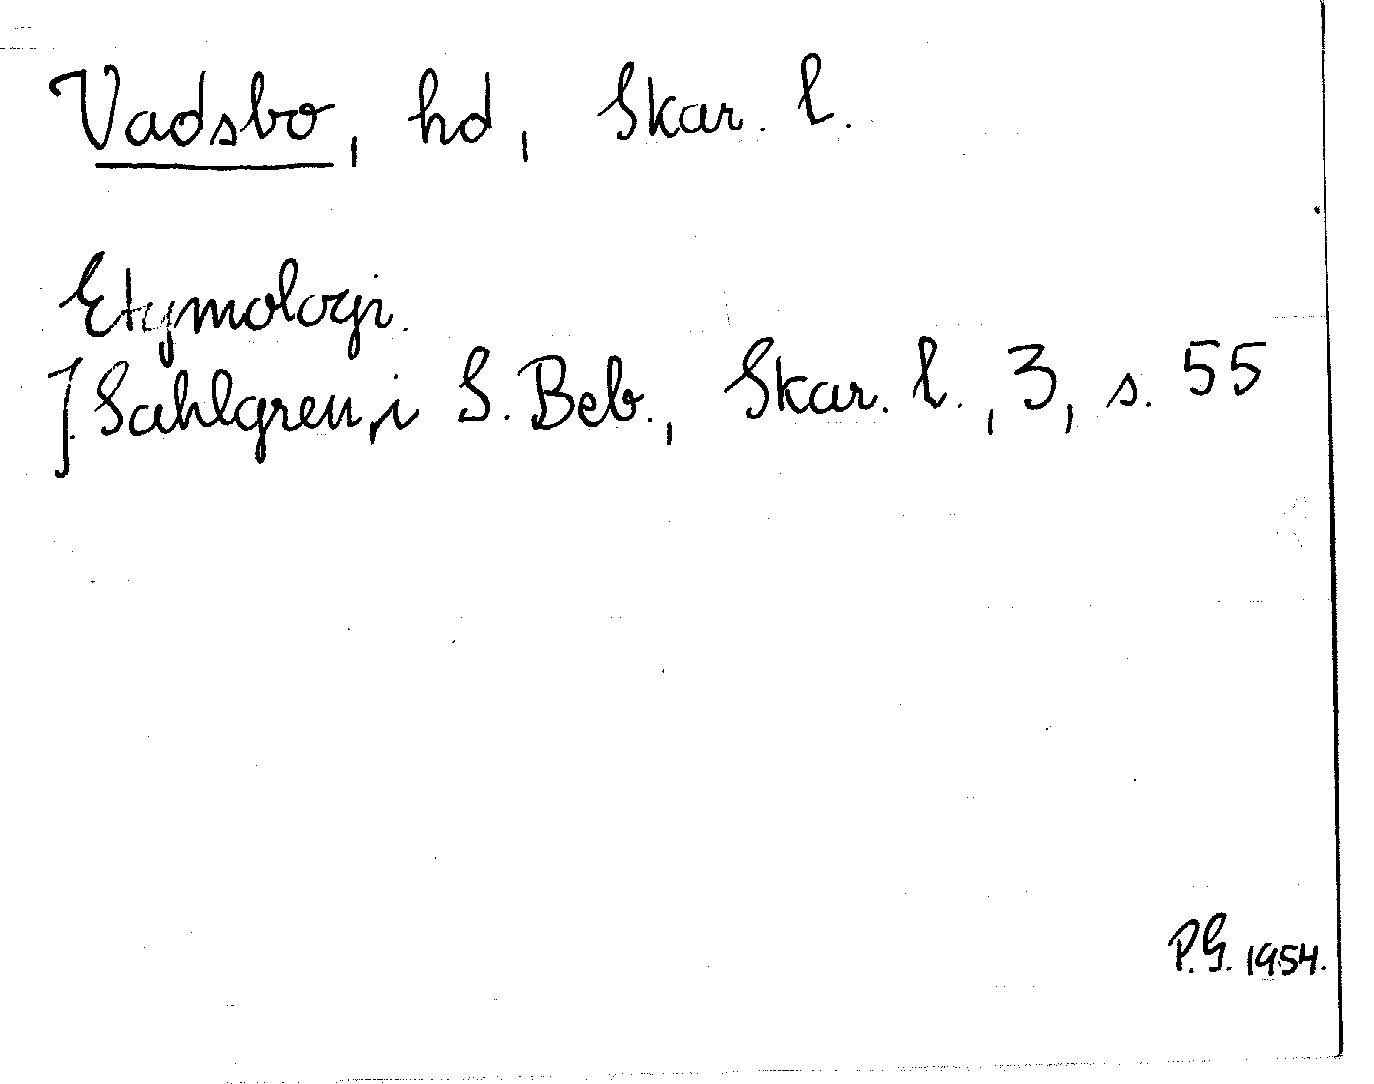 Vadsbo, hd, Skar. l.
Etymologi.
J. Sahlgren, i S. Beb., Skar. l., 3, s. 55
P.G. 1954.